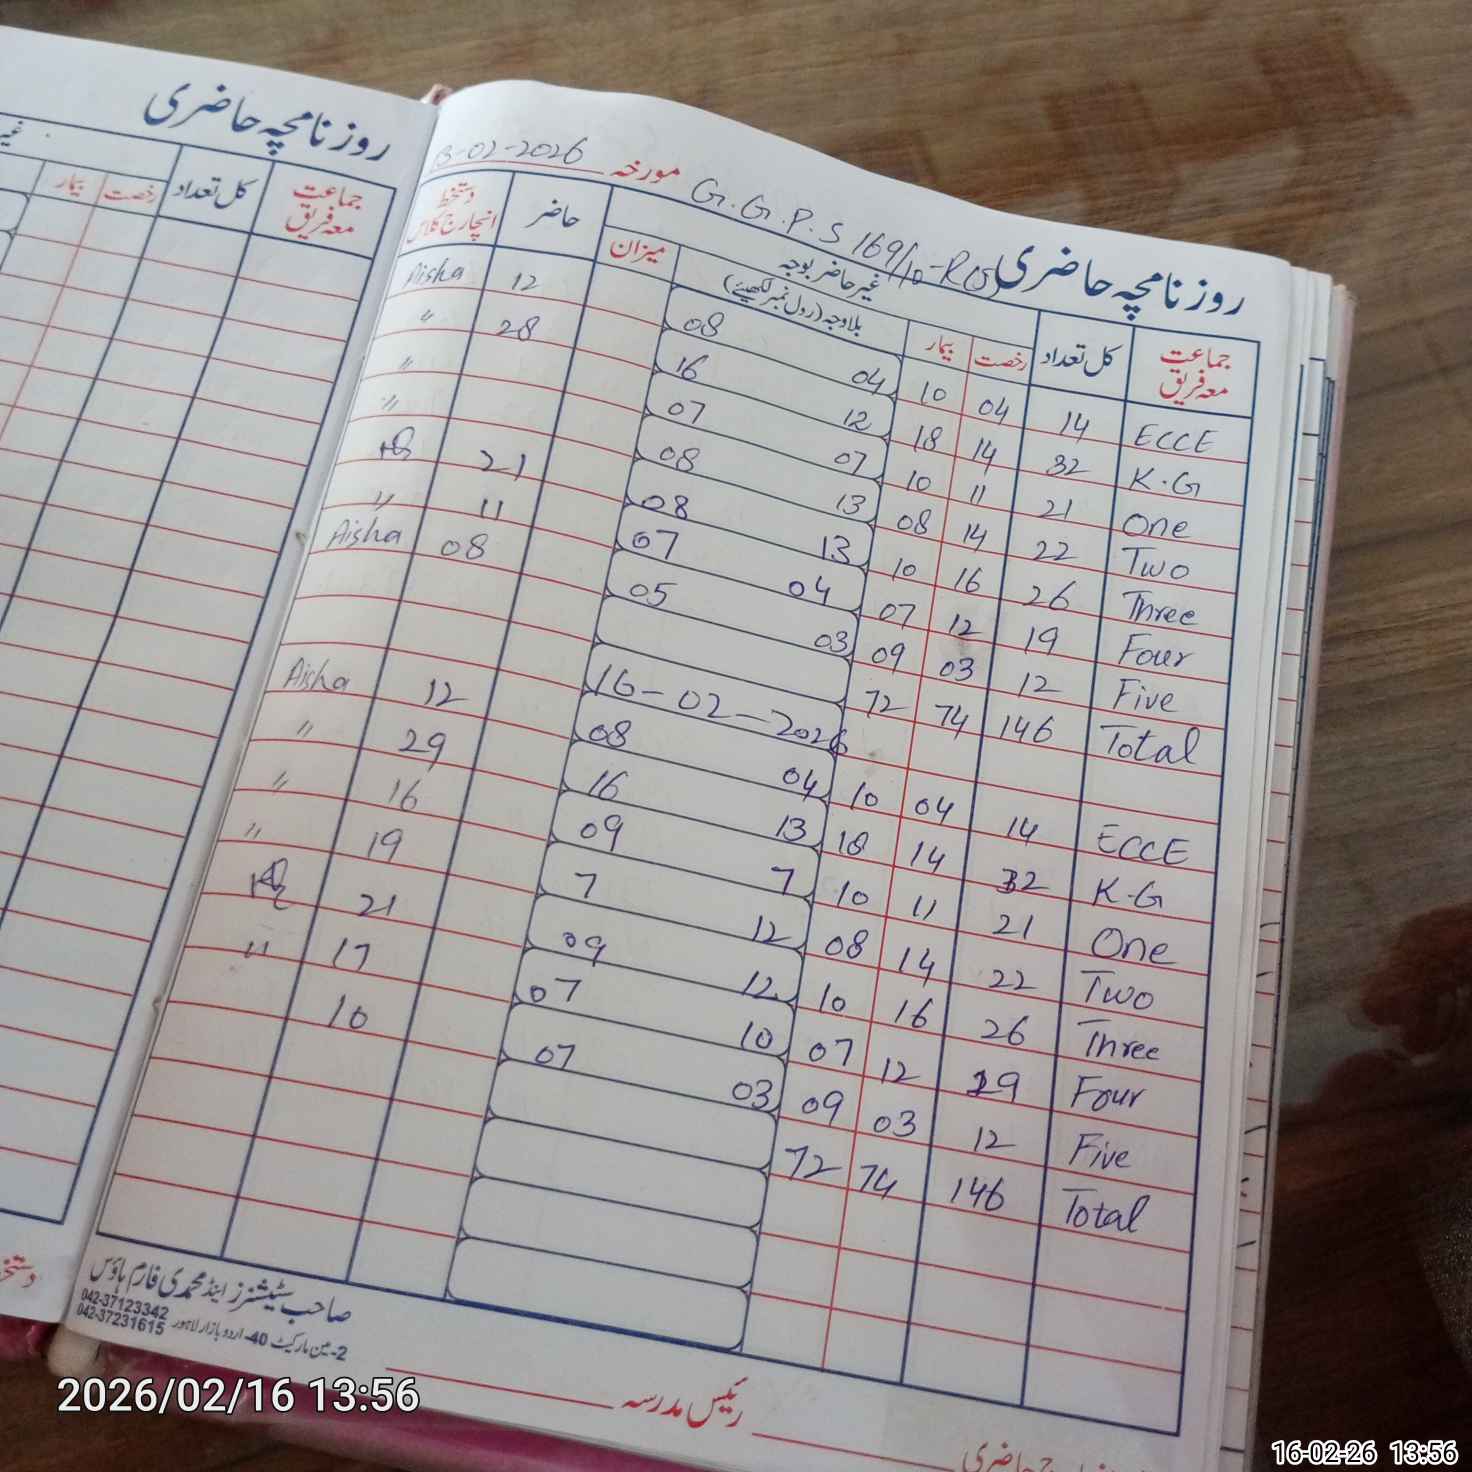 روزنامچہ حاضری
جماعت معہ فریق
کل تعداد
رخصت
بیمار
13-02-2026 مورخہ G.G.P.S 169/10-R(S) روزنامچہ حاضری
جماعت معہ فریق
کل تعداد
غیر حاضر بوجہ
رخصت
بیمار
بلاوجہ (رول نمبر لکھیئے)
میزان
حاضر
دستخط انچارج کلاس
Aisha 12 08 04 10 04 14 ECCE
" 28 16 12 18 14 32 K.G
" 07 07 10 11 21 One
" 08 13 08 14 22 Two
21 08 13 10 16 26 Three
" 11 07 04 07 12 19 Four
Aisha 08 05 03 09 03 12 Five
72 74 146 Total
16-02-2026
Aisha 12 08 04 10 04 14 ECCE
" 29 16 13 18 14 32 K.G
" 16 09 7 10 11 21 One
" 19 7 12 08 14 22 Two
21 09 12 10 16 26 Three
" 17 07 10 07 12 19 Four
10 07 03 09 03 12 Five
72 74 146 Total
صاحب سٹیشنرز اینڈ محمدی فارم ہاؤس
042-37123342
042-37231615
2-مین مارکیٹ 40-اردو بازار لاہور
رئیس مدرسہ
2026/02/16 13:56
16-02-26 13:56